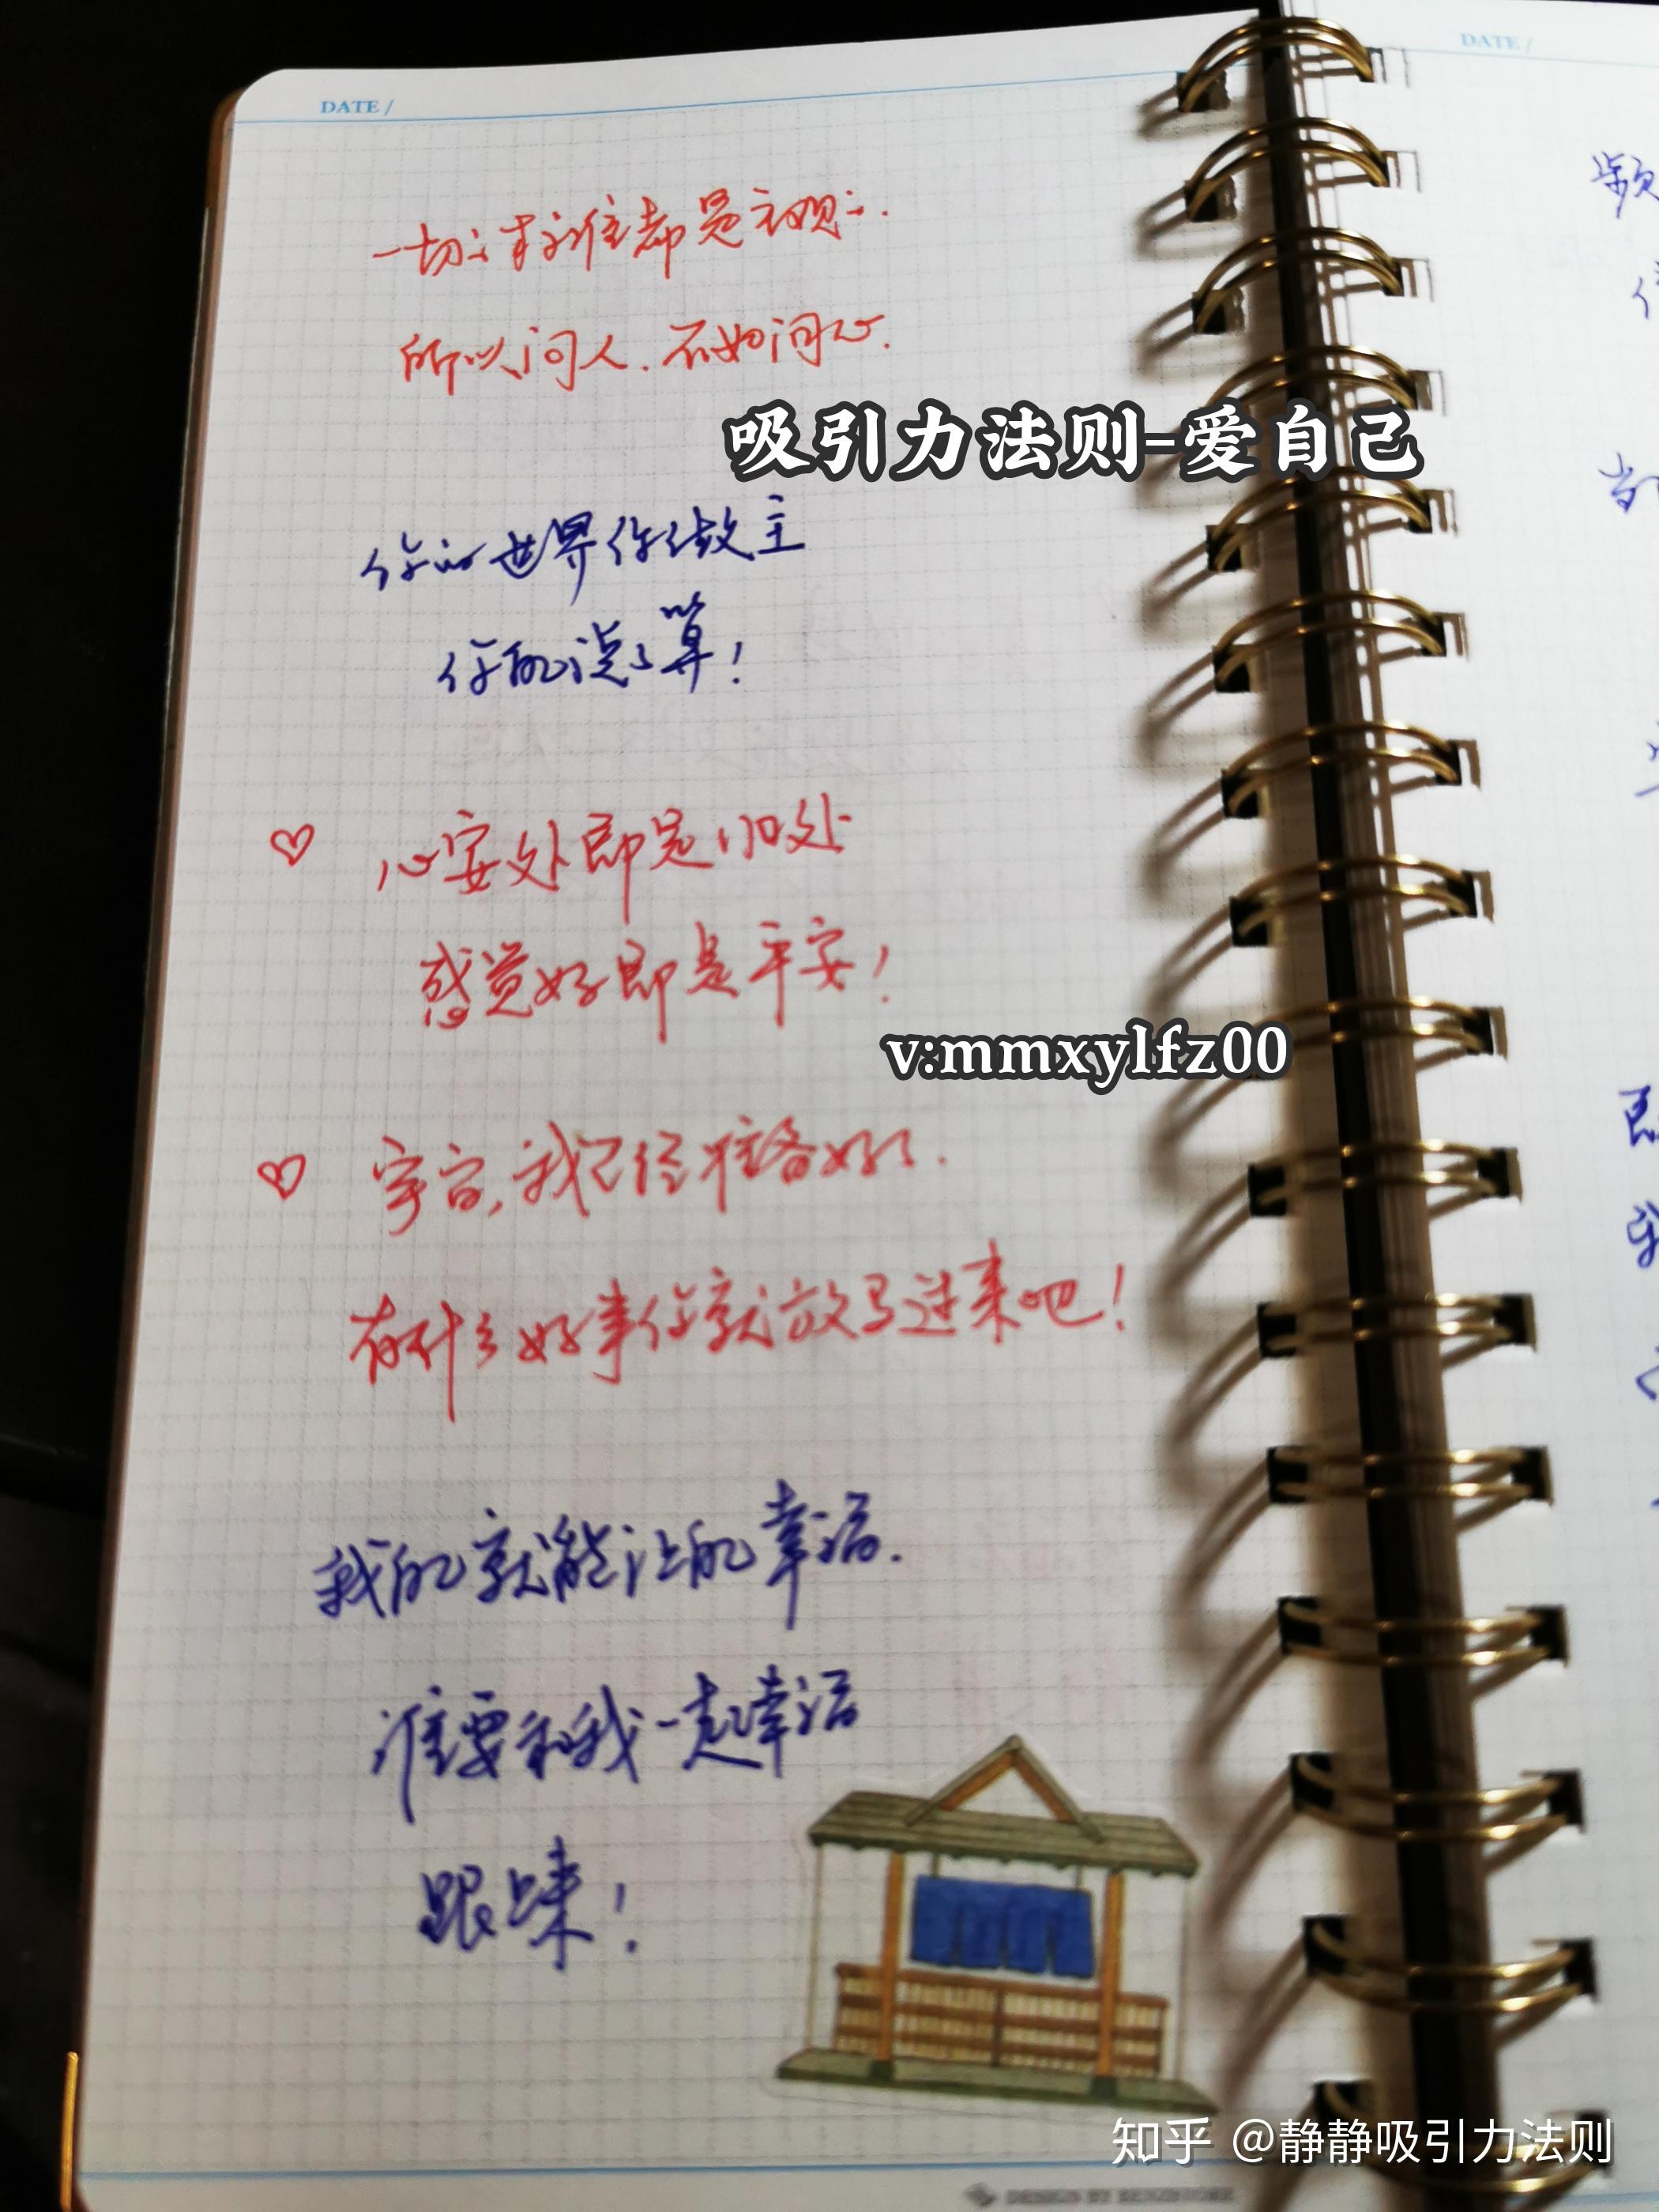 DATE /
DATE /
一切的标准都是主观的.
所以问人.不如问心.
吸引力法则-爱自己
你的世界你做主
你的说了算!
♡ 心安处即是归处
感觉好即是平安!
v:mmxylfz00
♡ 宇宙,我已经准备好了.
有什么好事你就放马过来吧!
我的就能让的幸福.
谁要和我一起幸福
跟上来!
知乎 @静静吸引力法则